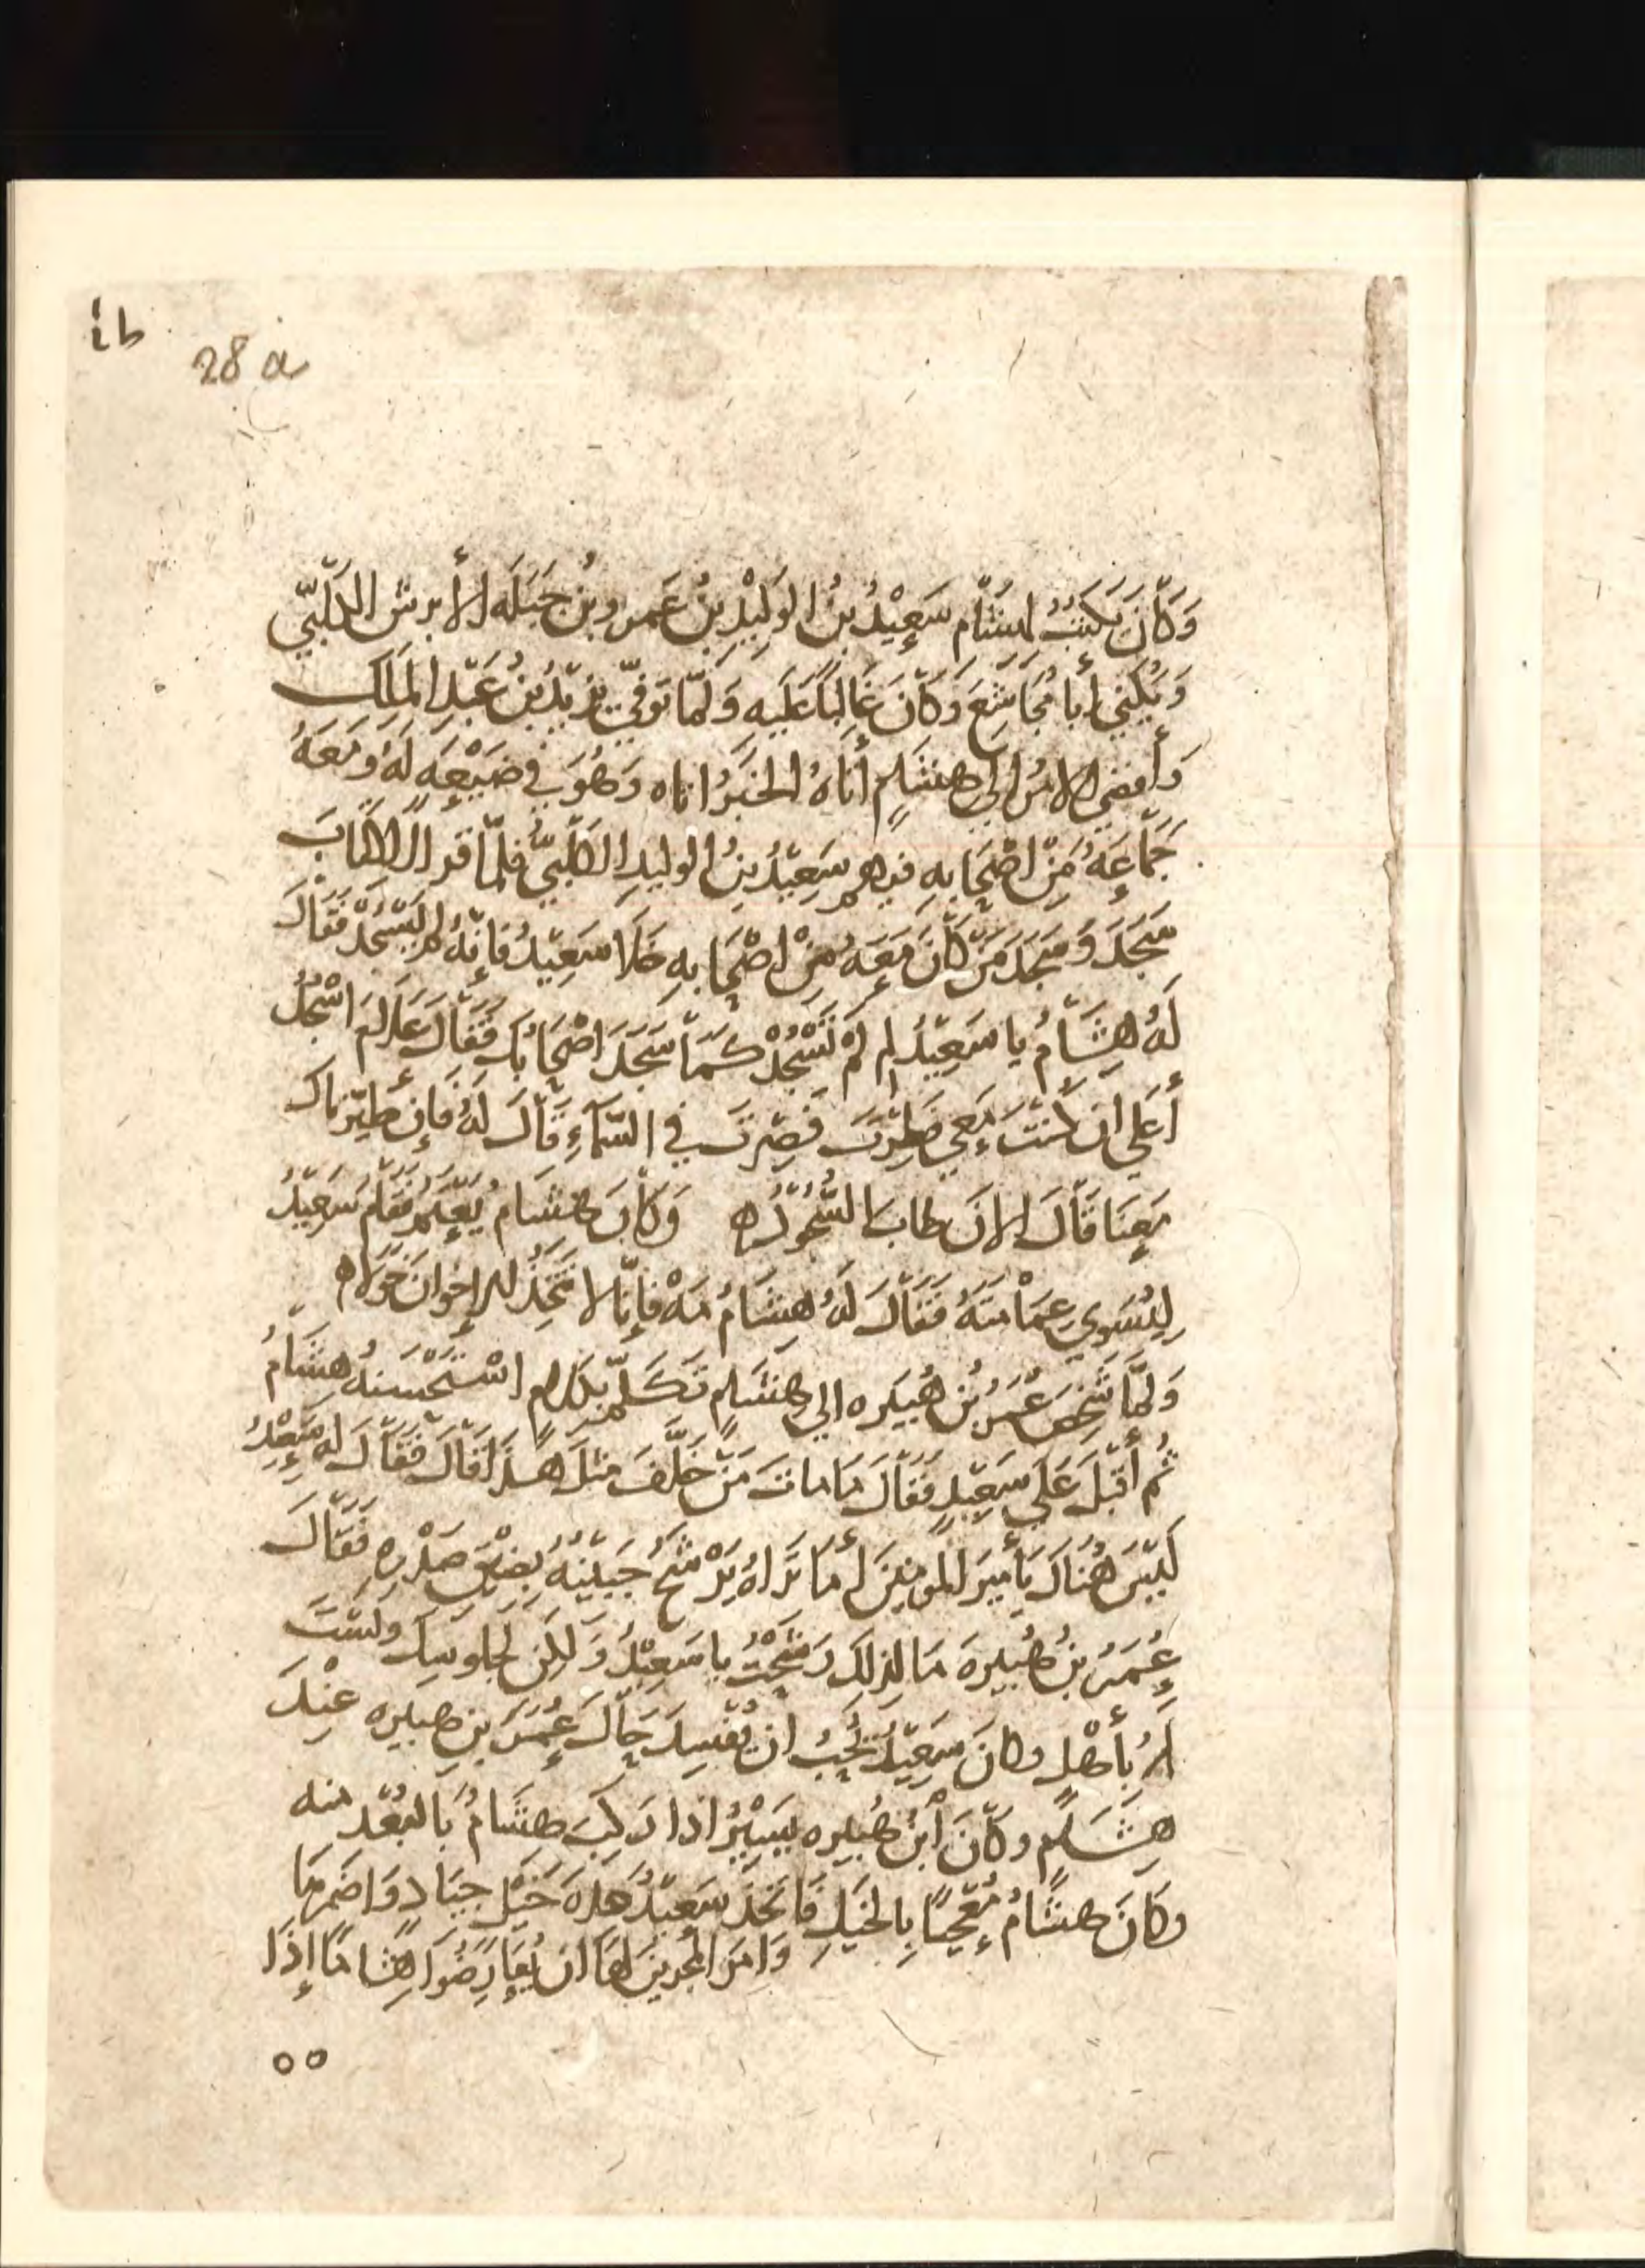 i b
28 a
وَكَانَ يَكتُبُ لهِشَام سَعِيْدُ بنُ الوَلِيْدِ بنُ عَمرو بنُ جَبَلَه الأَبرش الكَلْبيّ
وَيُكنى أبا مُجَاشِعَ وَكَانَ غَالِبًا عَلَيهِ وَلَمّا تُوفيّ يَزيْدُ بنُ عَبْدِ المَلِك
وَأَفضى الامرُ الى هشَامٍ أتاهُ الخَبَرُ اتاه وَهُوَ في ضَيْعِه لَهُ وَمَعَهُ
جَمّاعَةُ مِنْ اصْحَابِهِ فيهم سَعِيْدُ بنُ الوليدِ الكَلْبيّ فلمّا قرا الكِتَابَ
سَجَدَ وَسَجَدَ مَنْ كَانَ مَعَهُ مِنْ اصْحَابِهِ خَلا سَعِيْدُ فَإنّهُ لم يَسْجُدْ فَقَالَ
لَهُ هِشَامُ يا سَعِيْدُ لم لمْ تَسْجُدْ كَمَا سَجَدَ اصْحَابُكَ فَقَالَ عَلامَ اسْجُدُ
أَعَلى ان كُنتَ مَعي فَطِرْتَ فَصِرتَ في السَّمَآءِ قَالَ لَهُ فَإن طيّرناك
مَعِنَا قَالَ الانَ طابَ السُّجُودُ ه وَكَانَ هشَام يَعْتَمُ فَقَام سَعِيْدُ
لِيُسَوِي عِمَامَتَهُ فَقَالَ لَهُ هِشَامُ مَهْ فَإنّا لا نَتَّخِذُ الإخوانَ خَوَلا ه
وَلمَّا شَخِصَ عُمَرُ بُن هُبَيره الى هشَامٍ تَكَلّمَ بكَلام اسْتَحْسَنهُ هِشَامُ
ثُم أَقبَلَ عَلَى سَعِيْدٍ فَقَالَ مَا ماتَ مَنْ خَلَّفَ مثلَ هَذَا قَالَ فَقَالَ له سَعِيْدُ
لَيْسَ هُنَاكَ يَا أَميرَ المومنِينَ أَمَا تَرَاهُ يَرْشَحُ جَبَيْنُهُ بضِيْقِ صَدْرِهِ فَقَالَ
عُمَرُ بنُ هُبيرة مَا لِذلكَ رَشَحْتُ يا سَعِيْدُ وَلكِن لجلوسِك ولَسْتَ
لَهُ بأَهْلٍ وكانَ سَعِيْدُ يُحِبُ ان يُفْسِدَ حَالَ عُمَرَ بنِ هبيره عِنْدَ
هِشَامٍ وكَانَ أبنُ هُبيره يَسِيْرُ اذا رَكِبَ هشَامُ بَالبُعْد منه
وكَانَ هشَامُ مُعْجبًا بِالخَيلِ فَاتخَذَ سَعِيْدُ عدةَ خَيْل جيَادٍ وَاضمَرهَا
وَامرَ المجرينَ لهَا ان يُعَارِضُوا هِشامًا إذَا
٥٥